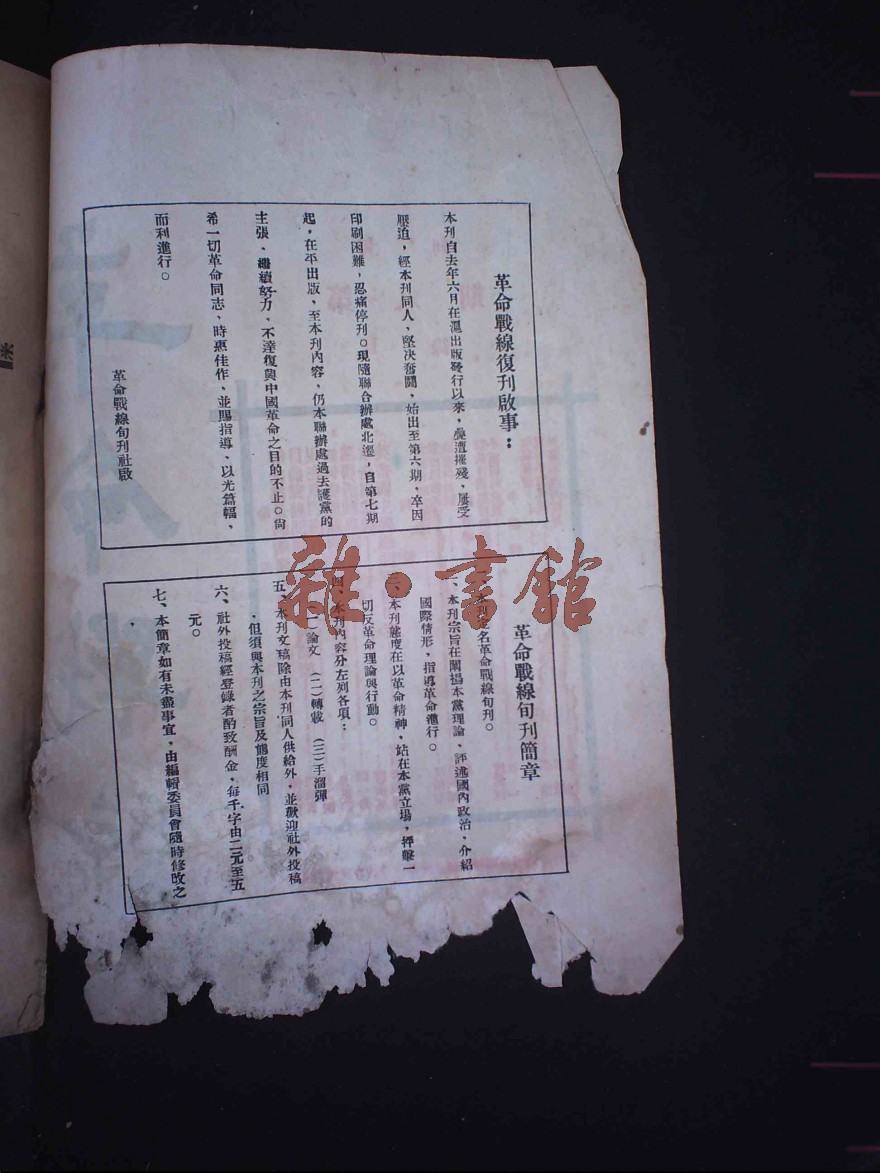 革命戰線復刊啟事：
本刊自去年六月在滬出版發行以來，疊遭摧殘，屢受
壓迫，經本刊同人，堅決奮鬪，始出至第六期，卒因
印刷困難，忍痛停刊。現隨聯合辦處北遷，自第七期
起，在平出版，至本刊內容，仍本聯辦處過去護黨的
主張，繼續努力，不達復興中國革命之目的不止。尙
希一切革命同志，時惠佳作，並賜指導，以光篇幅，
而利進行。
革命戰線旬刊社啟
革命戰線旬刊簡章
本刊定名革命戰線旬刊。
本刊宗旨在闡揚本黨理論，評述國內政治，介紹
國際情形，指導革命進行。
三、本刊態度在以革命精神，站在本黨立場，抨擊一
切反革命理論與行動。
四、本刊內容分左列各項：
（一）論文　（二）轉載　（三）手溜彈
五、本刊文稿除由本刊同人供給外，並歡迎社外投稿
，但須與本刊之宗旨及態度相同
六、社外投稿經登錄者酌致酬金，每千字由二元至五
元。
七、本簡章如有未盡事宜，由編輯委員會隨時修改之
，
雜·書館